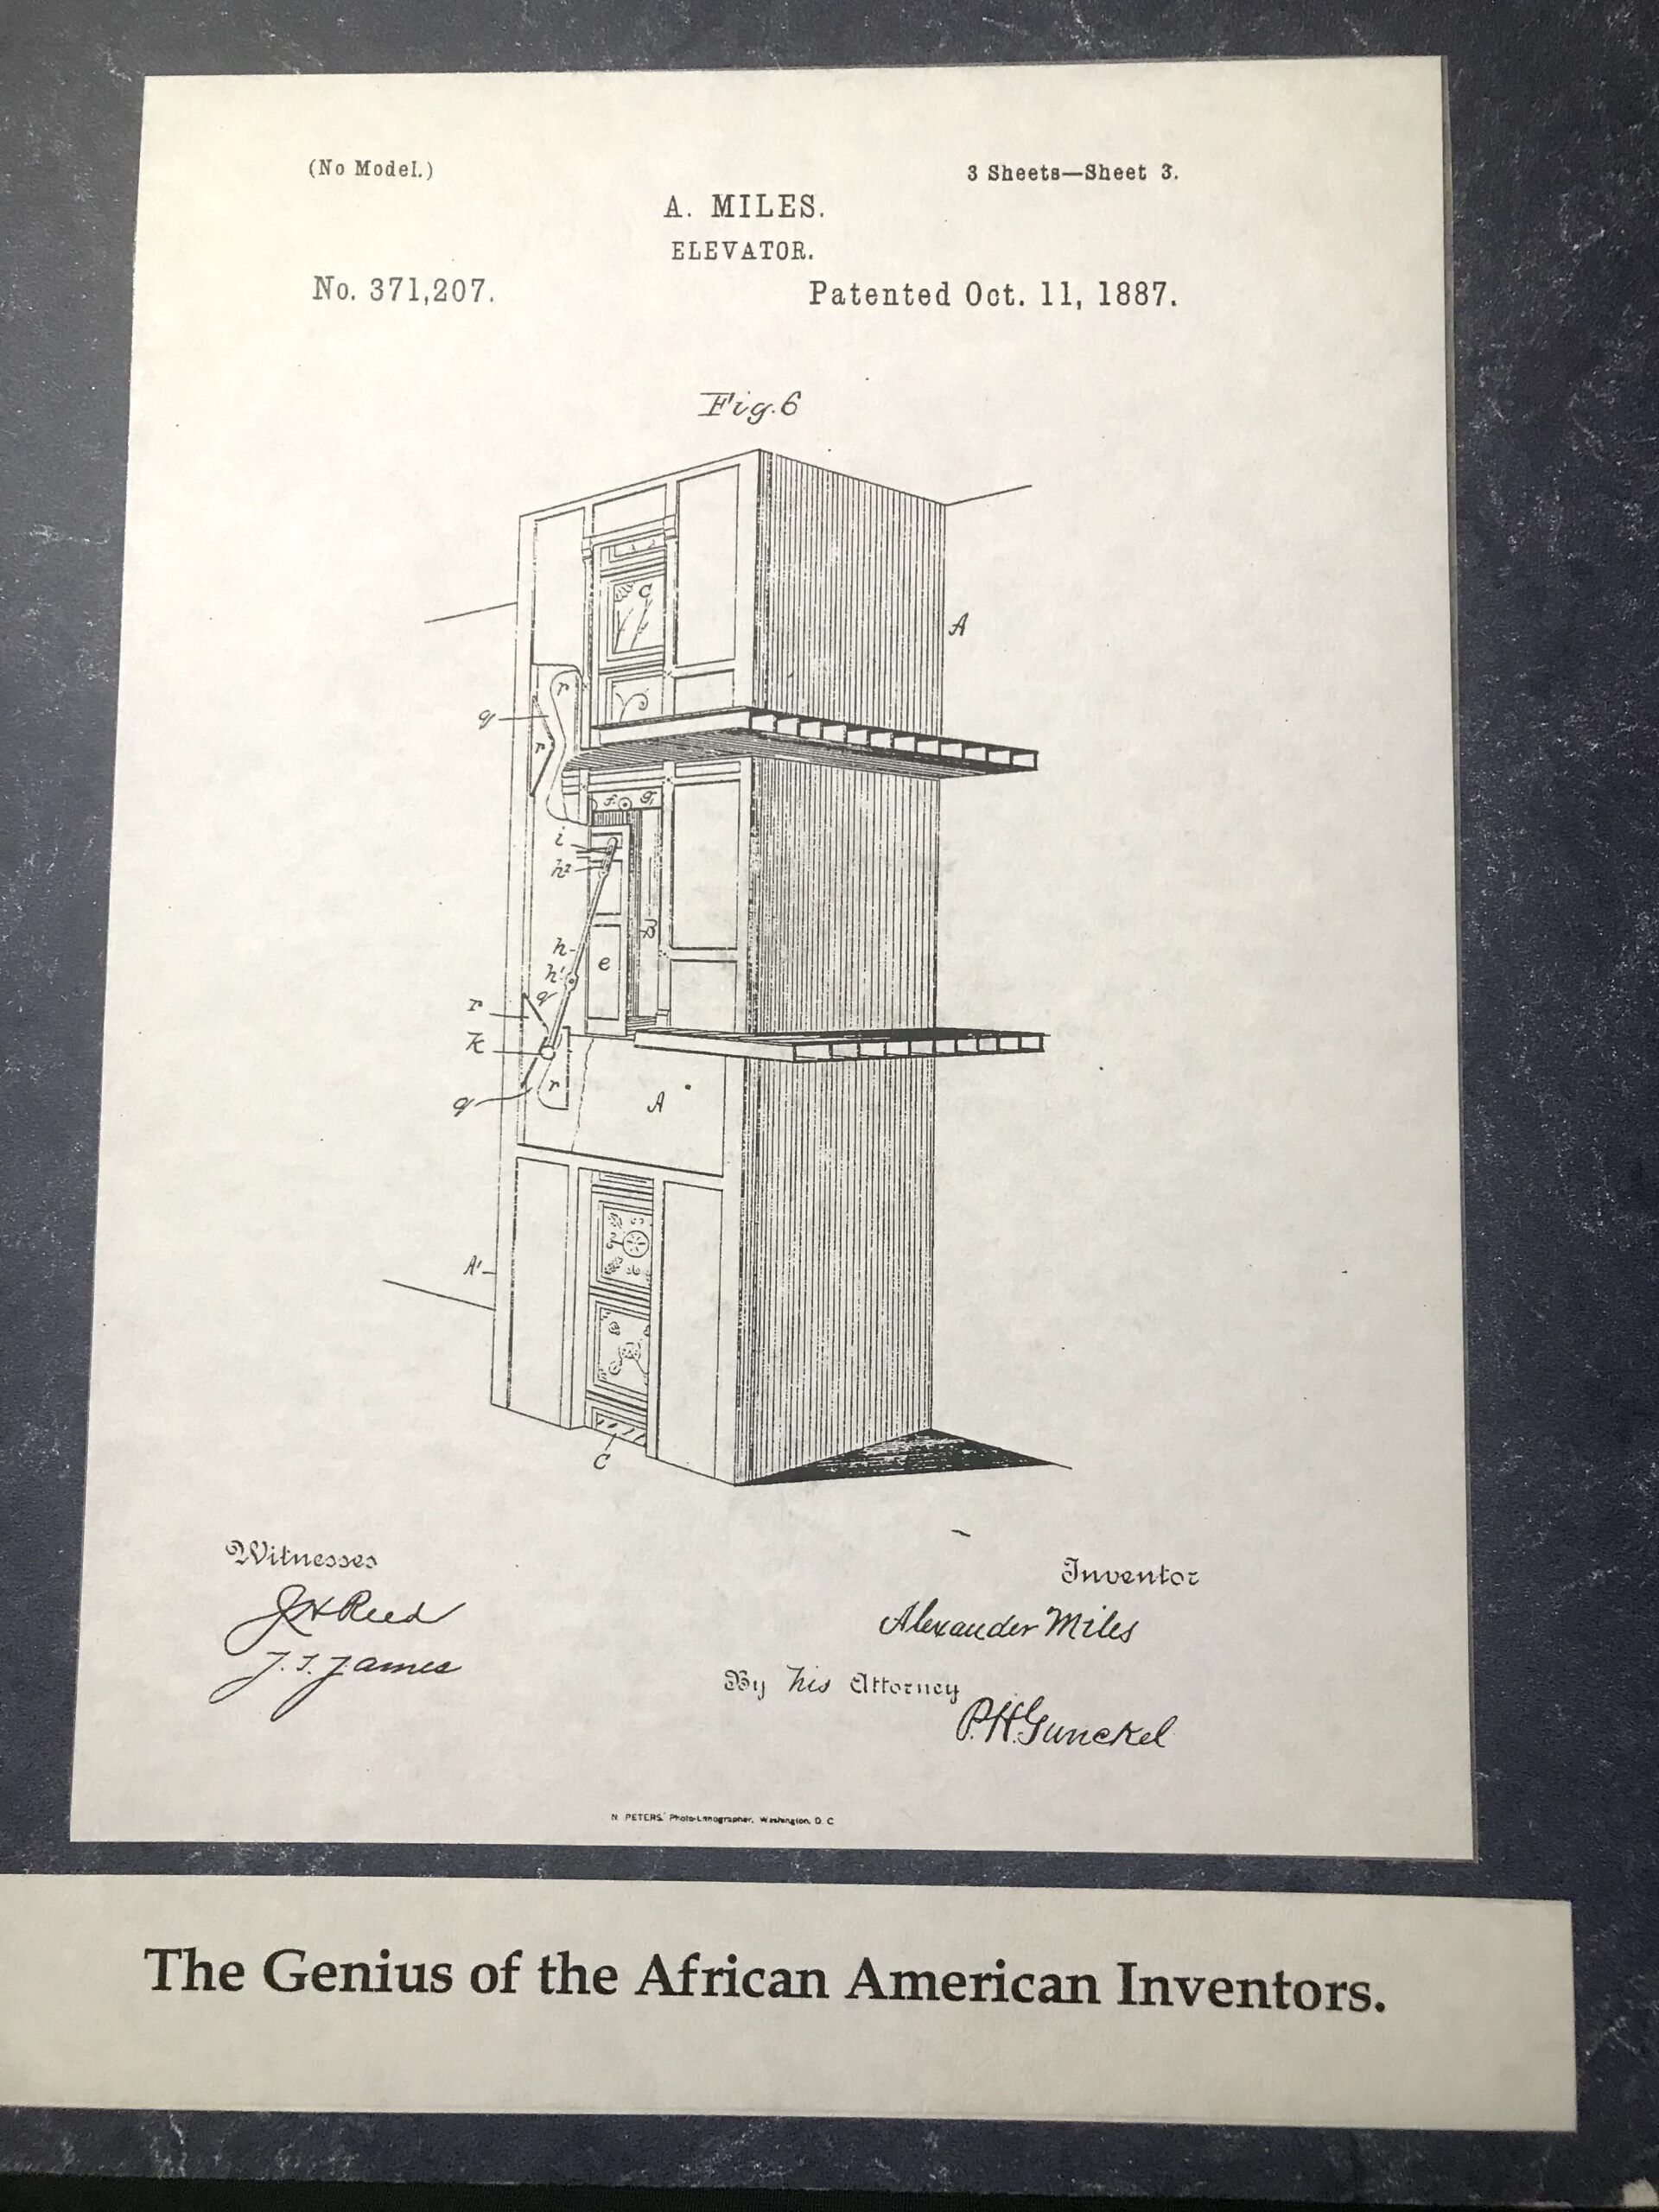 (No Model.)
3 Sheets—Sheet 3.
A. MILES.
ELEVATOR.
No. 371,207.
Patented Oct. 11, 1887.
Fig. 6
C
A
r
q
r
f g
i
h²
B
h
e
h'
q
r
k
r
q
A
A'
C
Witnesses
J H Reed
J. S. James
Inventor
Alexander Miles
By his Attorney
P. H. Gunckel
N. PETERS. Photo-Lithographer, Washington, D. C.
The Genius of the African American Inventors.